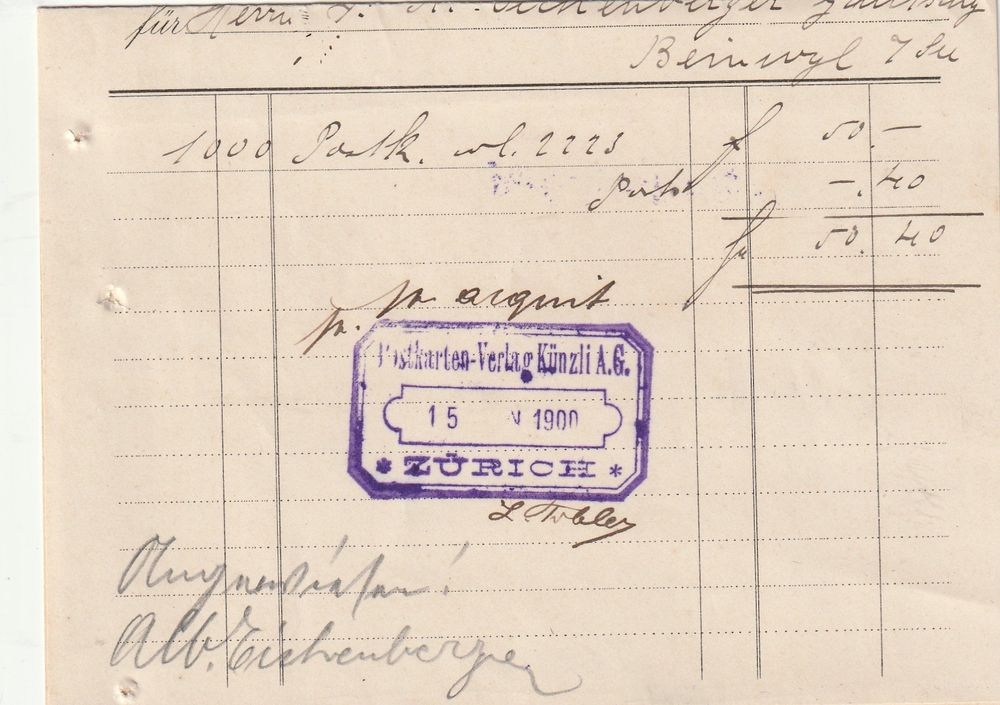 für Herrn Eichenberger
Beinwyl
1000 Postk. 2223 f 50.—
Porto —.40
fr 50.40
pr. acquit
Postkarten-Verlag Künzli A.G.
15 N 1900
* ZÜRICH *
L. Tobler
Alb. Eichenberger